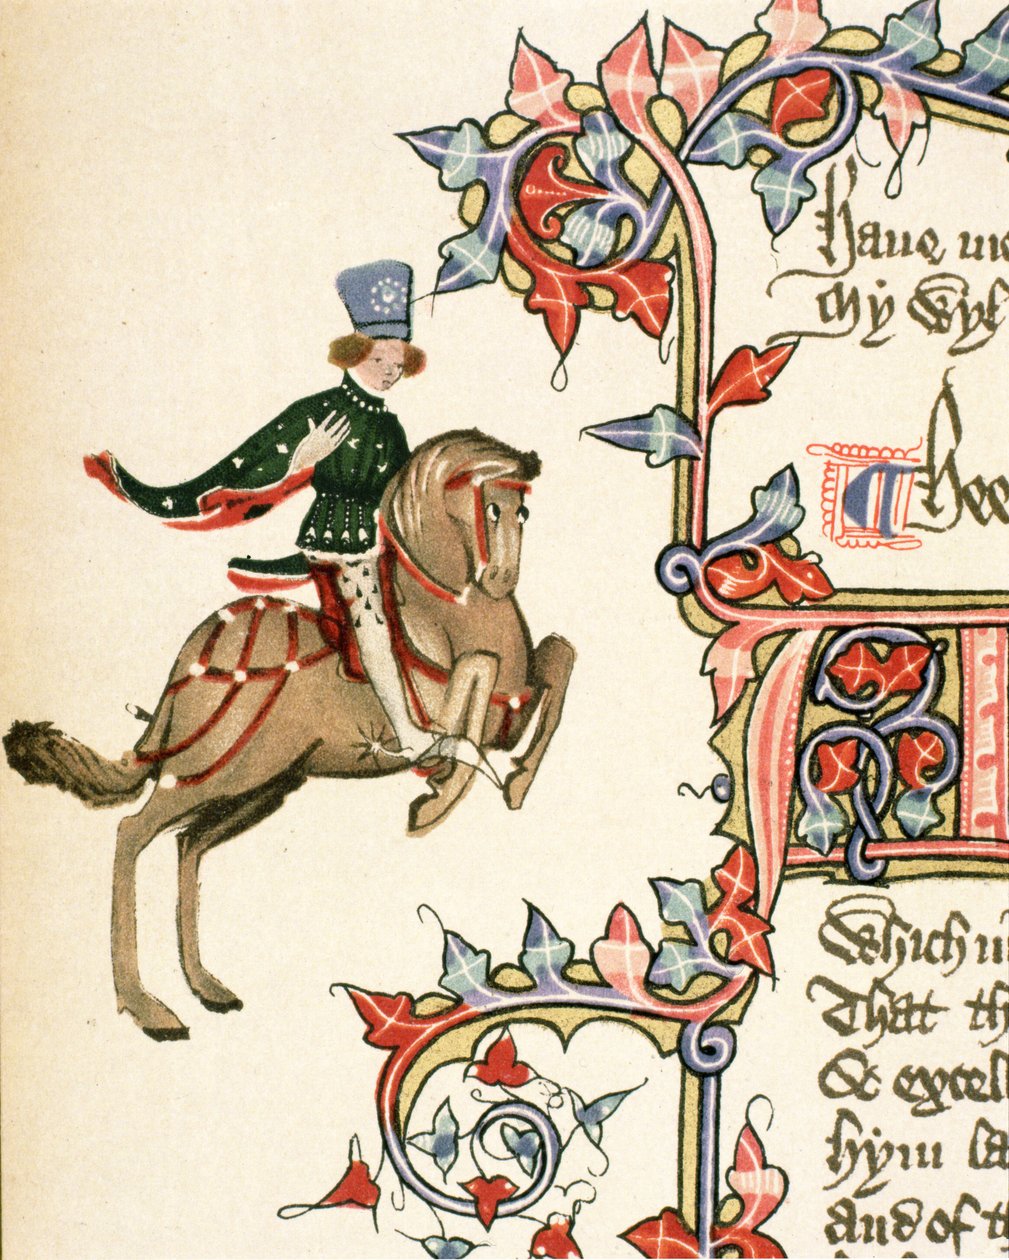 Haue
my Wyf
Heer
A
Which
That th
& excel
hym la
and of th